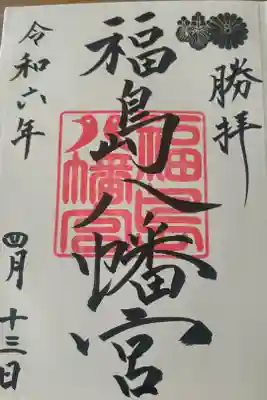 勝拝
福島八幡宮
令和六年
四月十三日
福島
八幡宮